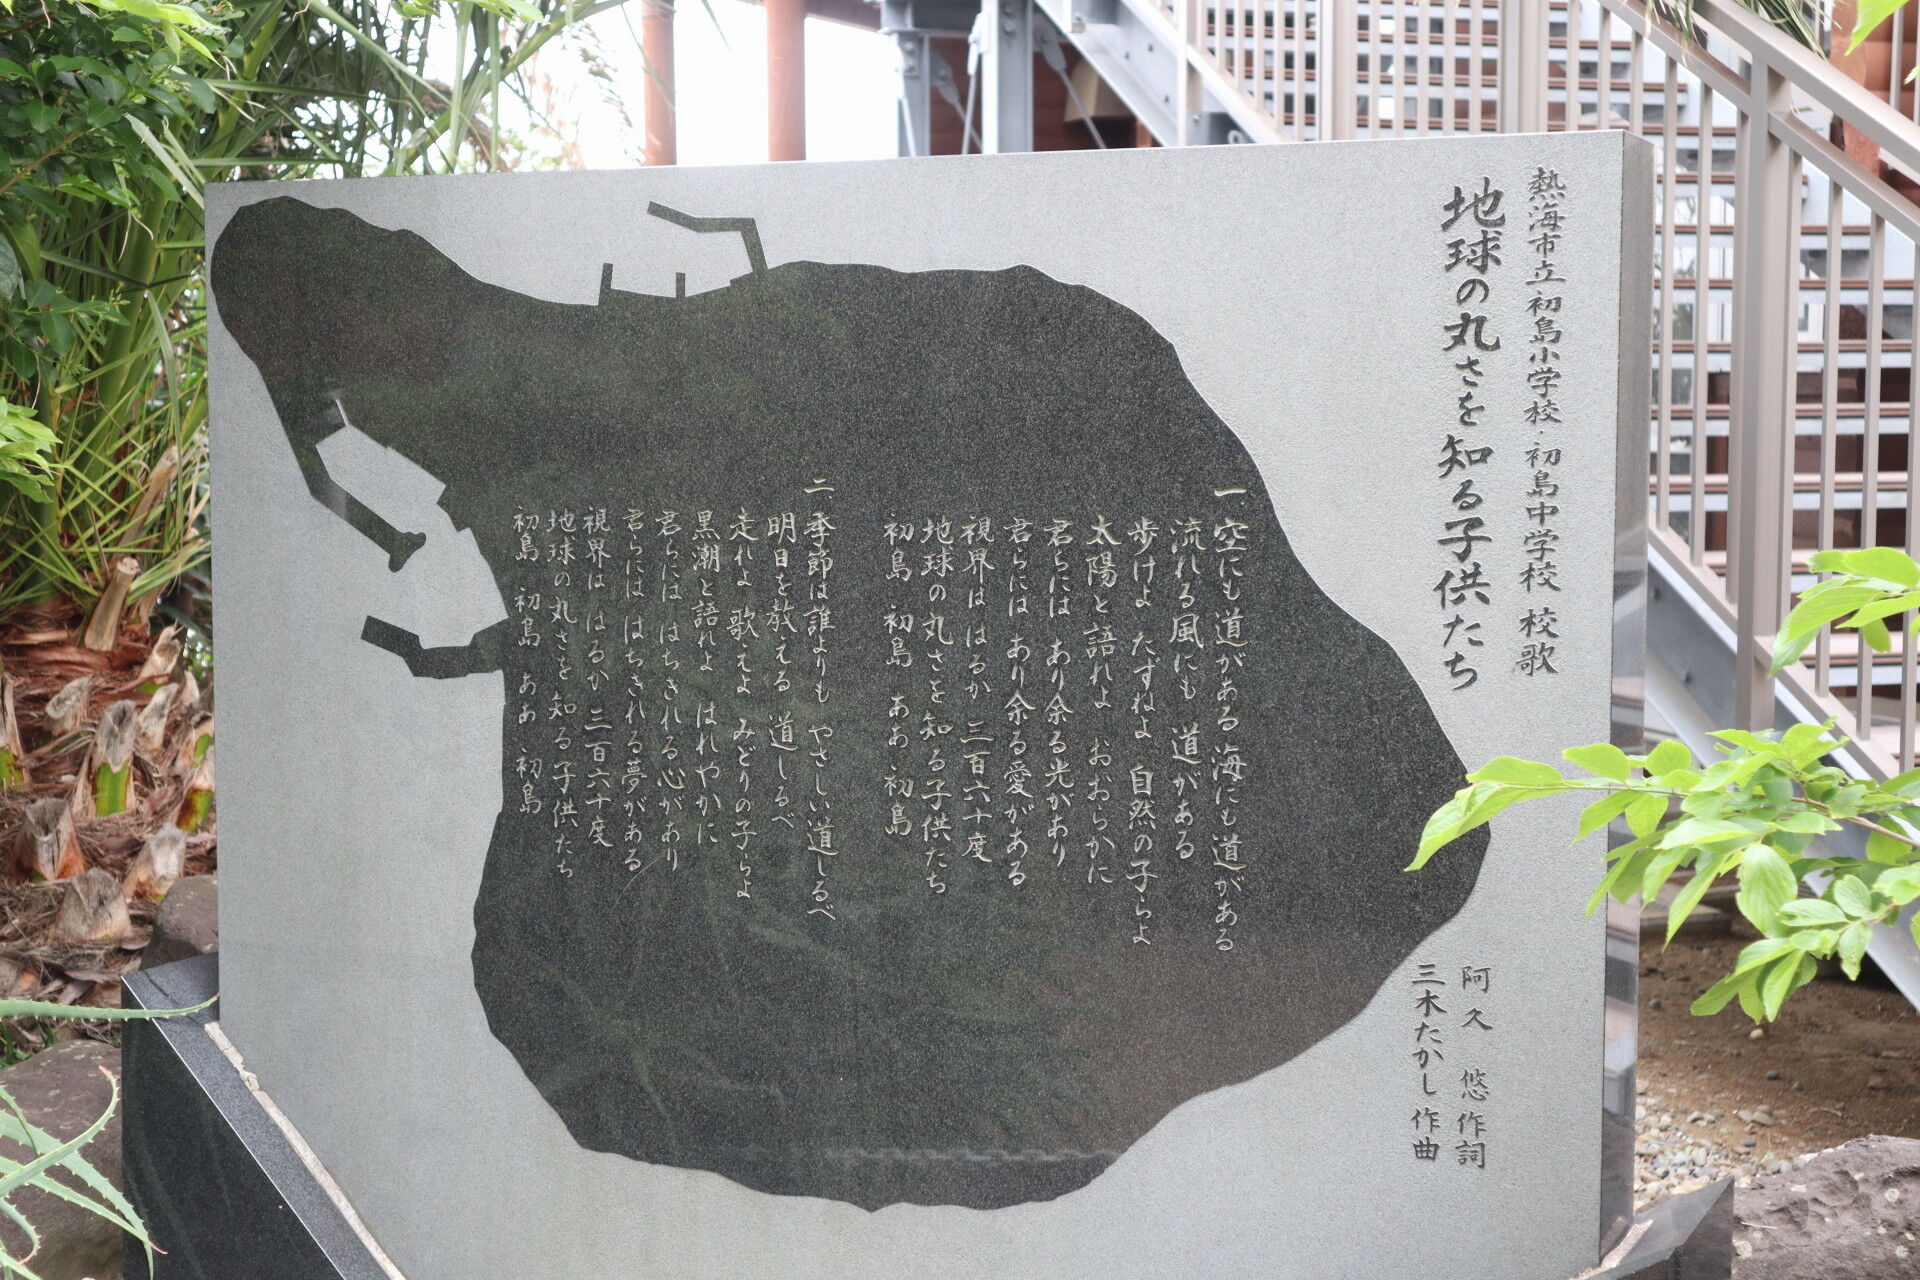 熱海市立初島小学校・初島中学校 校歌
地球の丸さを知る子供たち
阿久 悠 作詞
三木たかし 作曲
一、空にも道がある 海にも道がある
流れる風にも 道がある
歩けよ たずねよ 自然の子らよ
太陽と語れよ おおらかに
君らには あり余る光があり
君らには あり余る愛がある
視界は はるか 三百六十度
地球の丸さを 知る子供たち
初島 初島 ああ 初島
二、季節は誰よりも やさしい道しるべ
明日を教える 道しるべ
走れよ 歌えよ みどりの子らよ
黒潮と語れよ はれやかに
君らには はちきれる心があり
君らには はちきれる夢がある
視界は はるか 三百六十度
地球の丸さを 知る子供たち
初島 初島 ああ 初島